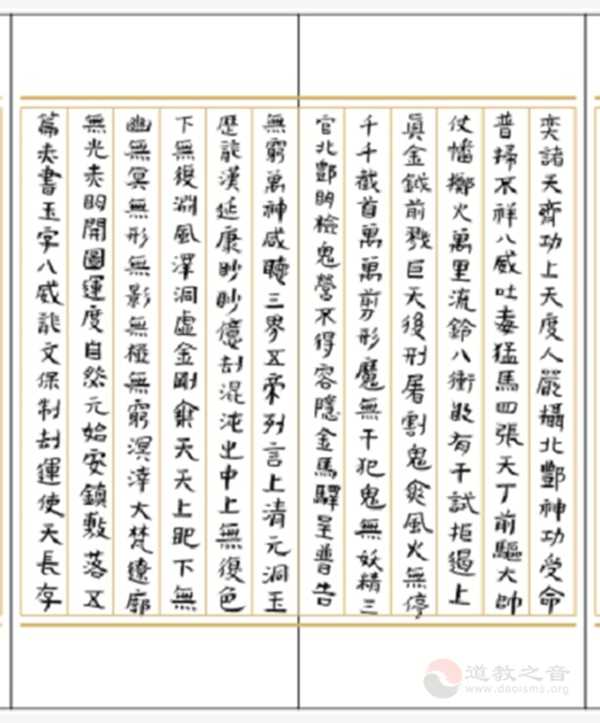 奕諸天齊功上天度人嚴攝北酆神功受命
普掃不祥八威吐毒猛馬四張天丁前驅大帥
仗幡擲火萬里流鈴八衝敢有干試拒遏上
眞金鉞前戮巨天後刑屠割鬼爽風火無停
千千截首萬萬剪形魔無干犯鬼無妖精三
官北酆明檢鬼營不得容隱金馬驛呈普告
無窮萬神咸聽三界五帝列言上清元洞玉
歷龍漢延康眇眇億劫混沌之中上無復色
下無復淵風澤洞虛金剛乘天天上下無
幽無冥無形無影無極無窮溟涬大梵遼廓
無光赤明開圖運度自然元始安鎮敷落五
篇赤書玉字八威龍文保制劫運使天長存
道教之音
www.daoisms.org